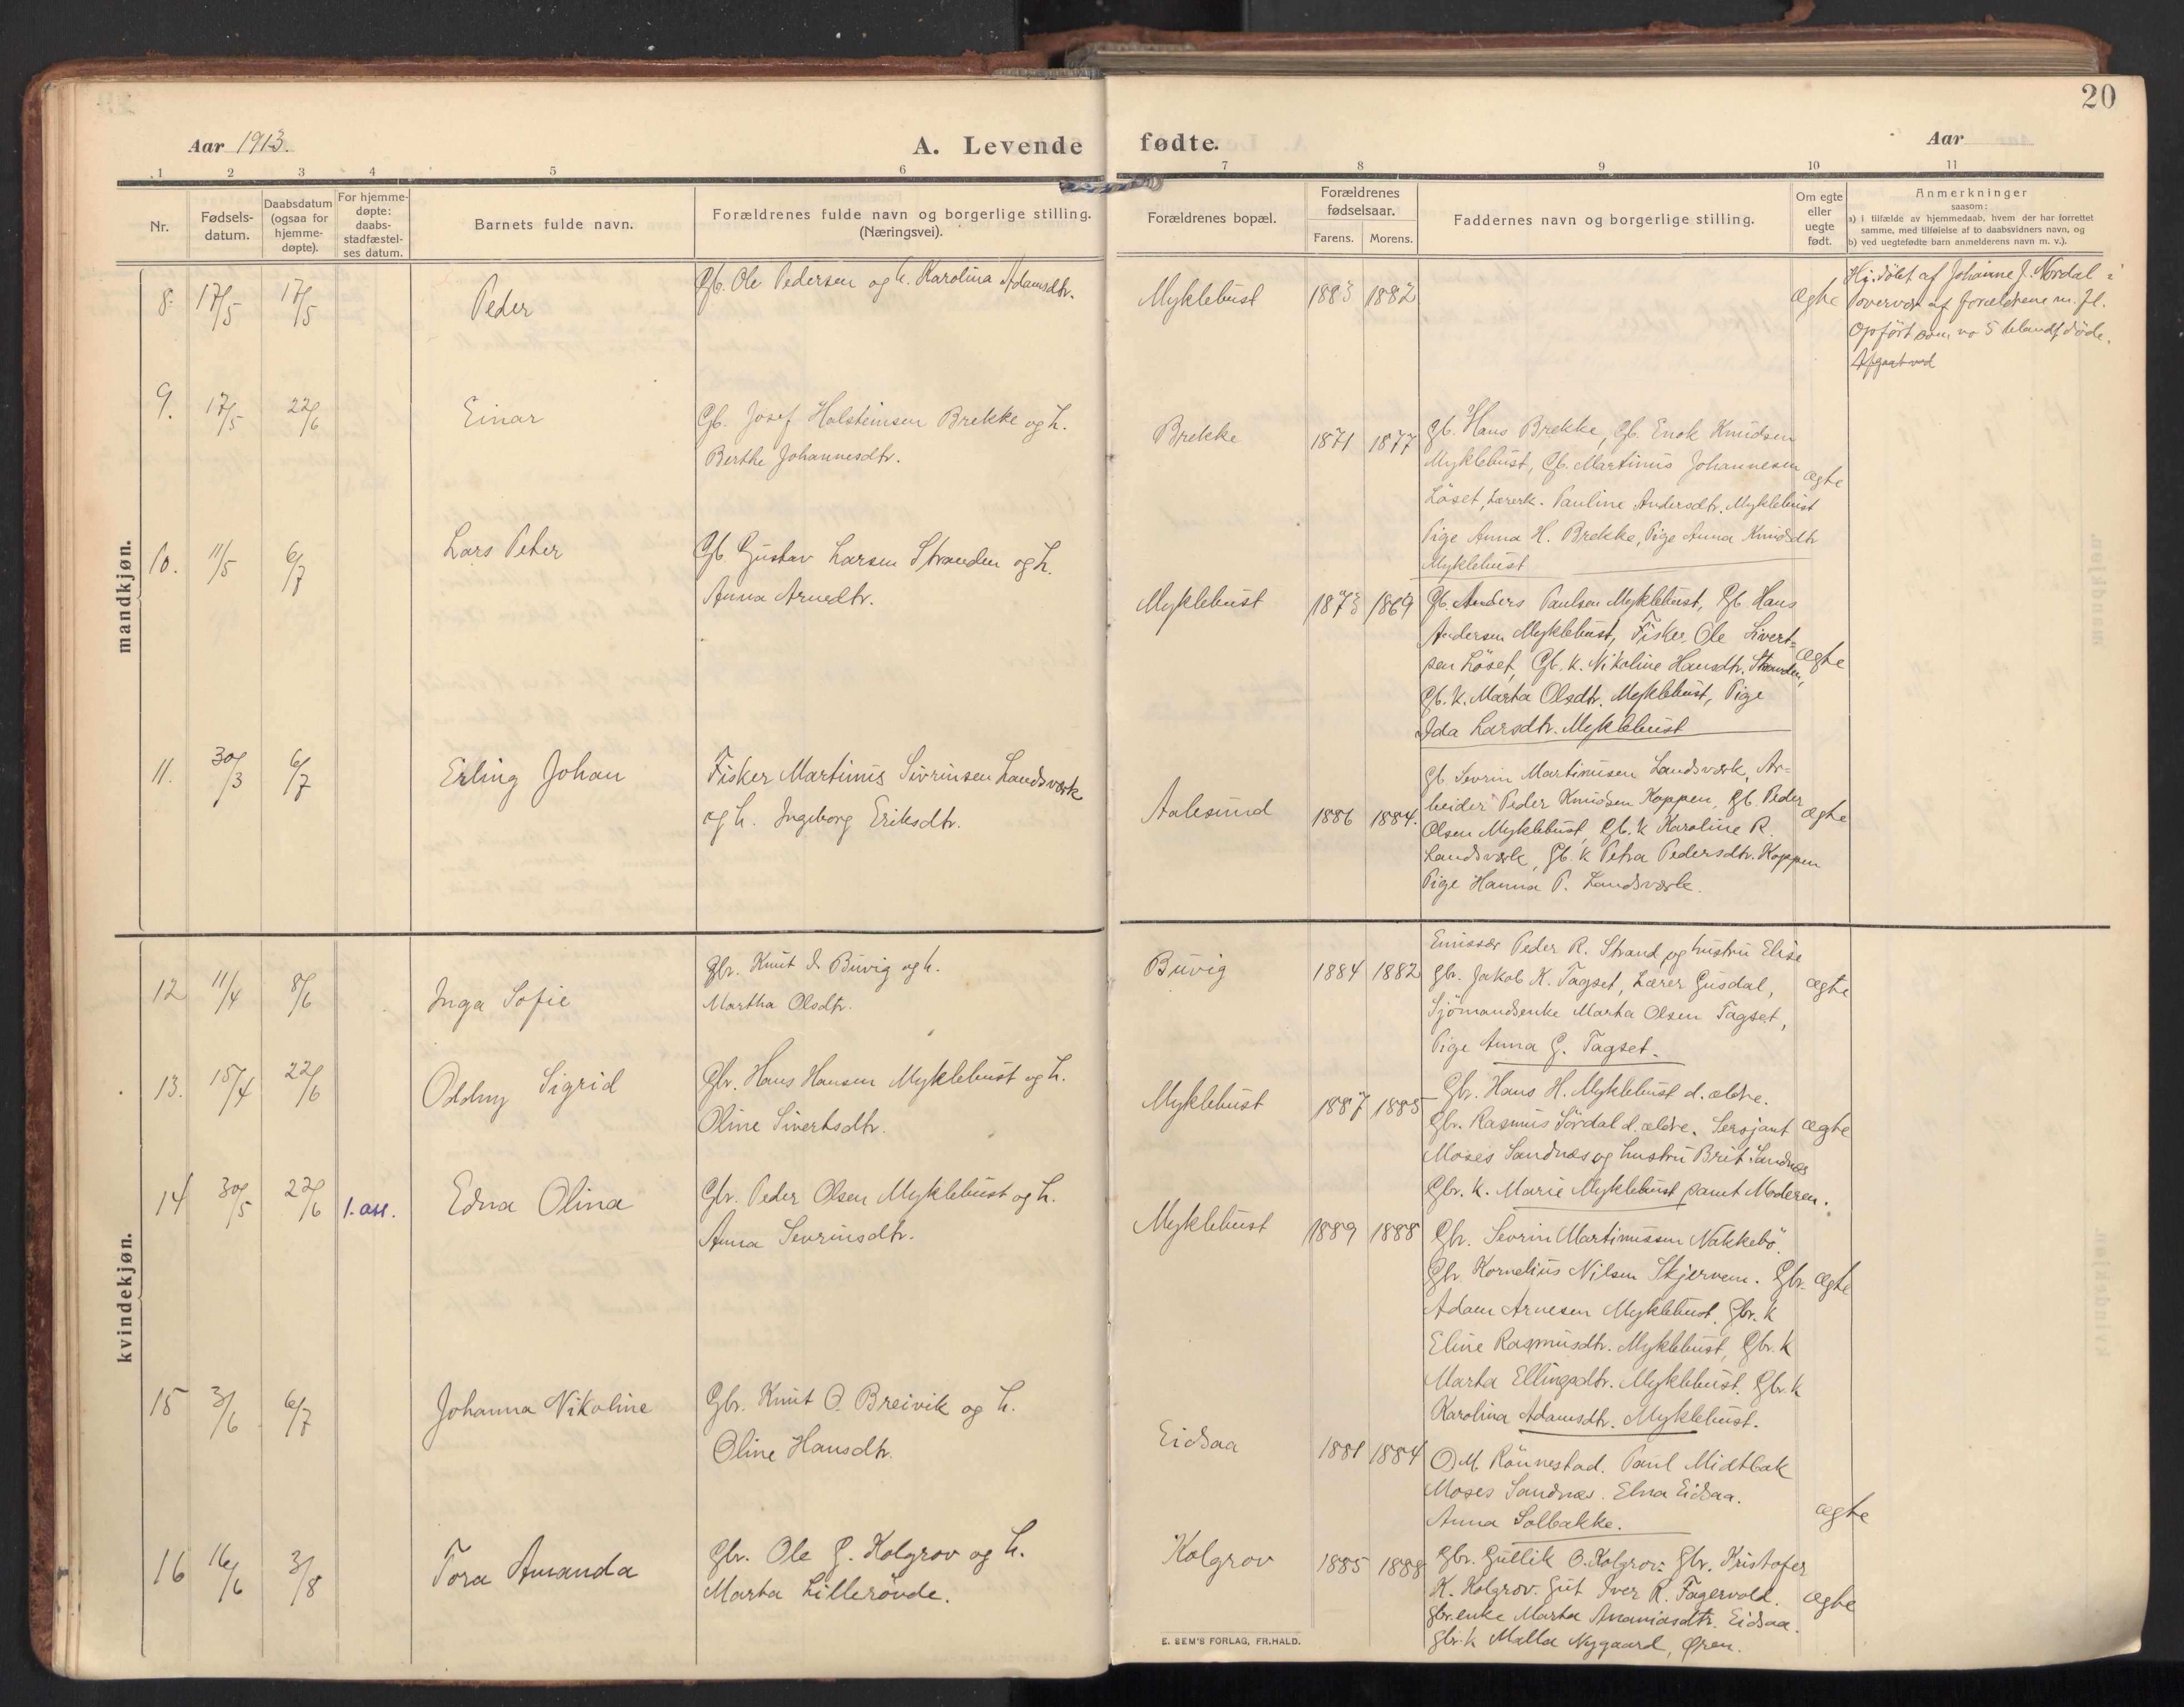 20
Aar 1913.
A. Levende fødte.
Aar
1 2 3 4 5 6 7 8 9 10 11
Nr.
Fødsels-
datum.
Daabsdatum
(ogsaa for
hjemme-
døpte).
For hjemme-
døpte:
daabs-
stadfæstel-
ses datum.
Barnets fulde navn.
Forældrenes fulde navn og borgerlige stilling.
(Næringsvei).
Forældrenes bopæl.
Forældrenes
fødselsaar.
Farens. Morens.
Faddernes navn og borgerlige stilling.
Om egte
eller
uegte
født.
Anmerkninger
saasom:
a) i tilfælde av hjemmedaab, hvem der har forrettet
samme, med tilføielse af to daabsvidners navn, og
b) ved uegtefødte barn anmelderens navn m. v.).
mandkjøn.
8. 17/5 17/5 Peder
Gb. Ole Pedersen og h. Karolina Adamsdtr.
Myklebust 1883 1882
ægte
Hj.døbt af Johanne J. Nordal i
overvær af forældrene m. fl.
Opført som no 5 blandt døde.
9. 17/5 22/6 Einar
Gb. Josef Holsteinsen Brekke og h.
Berthe Johannesdtr.
Brekke 1871 1877
Gb. Hans Brekke, Gb. Enok Knudsen
Myklebust, Gb. Martinus Johannesen
Löset, Lærerk. Pauline Andersdtr. Myklebust
Pige Anna H. Brekke, Pige Anna Knudsdtr
Myklebust
ægte
10. 11/5 6/7 Lars Peter
Gb. Gustav Larsen Stranden og h.
Anna Arnedtr.
Myklebust 1873 1869
Gb. Anders Paulsen Myklebust, Gb. Hans
Andersen Myklebust, Fisker Ole Sivert-
sen Löset, Gb. k. Nikoline Hansdtr. Stranden,
Gb. k. Marta Olsdtr. Myklebust, Pige
Ida Larsdtr. Myklebust
ægte
11. 30/3 6/7 Erling Johan
Fisker Martinus Sivrinsen Landsværk
og h. Ingeborg Eriksdtr.
Aalesund 1886 1884.
Gb. Sevrin Martinusen Landsværk, Ar-
beider Peder Knudsen Koppen, Gb. Peder
Olsen Myklebust, Gb. k Karoline R.
Landsværk, Gb. k Petra Pedersdtr. Koppen
Pige Hanna P. Landsværk.
ægte
kvindekjøn.
12 11/4 8/6 Inga Sofie
Gbr. Knut J. Buvig og h.
Martha Olsdtr.
Buvig 1884 1882
Emissær Peder R. Strand og hustru Elise
Gbr. Jakob K. Tagset, Lærer Gusdal,
Sjömandsenke Marta Olsen Tagset,
Pige Anna G. Tagset.
ægte
13. 15/4 22/6 Oddny Sigrid
Gbr. Hans Hansen Myklebust og h.
Oline Sivertsdtr.
Myklebust 1887 1885
Gbr. Hans H. Myklebust d. ældre.
Gbr. Rasmus Sördal d. ældre. Sersjant
Moses Sandnæs og hustru Brit Sandnæs
Gbr. k. Marie Myklebust samt Moderen.
ægte
14 30/5 22/6 1. aug. Edna Olina
Gbr. Peder Olsen Myklebust og h.
Anna Sevrinsdtr.
Myklebust 1889 1888
Gbr. Sevrin Martinussen Nakkebö.
Gbr. Kornelius Nilsen Skjerven. Gbr.
Adam Arnesen Myklebust. Gbr. k
Eline Rasmusdtr. Myklebust, Gbr. k
Marta Ellingsdtr. Myklebust. Gbr. k
Karolina Adamsdtr. Myklebust.
ægte
15 3/6 6/7 Johanna Nikoline
Gbr. Knut O. Breivik og h.
Oline Hansdtr.
Eidsaa 1881 1884
O. M. Rönnestad. Paul Midtbak
Moses Sandnæs. Elna Eidsaa.
Anna Solbakke.
ægte
16 16/6 3/8 Tora Amanda
Gbr. Ole G. Kolgrov og h.
Marta Lillerövde.
Kolgrov 1885 1888
Gbr. Gullik O. Kolgrov. Gbr. Kristofer
K. Kolgrov. Gut Iver R. Fagervold.
Gbr. enke Marta Ananiasdtr. Eidsaa.
Gbr. k Malla Nygaard, Øren.
ægte
E. SEM'S FORLAG, FR.HALD.